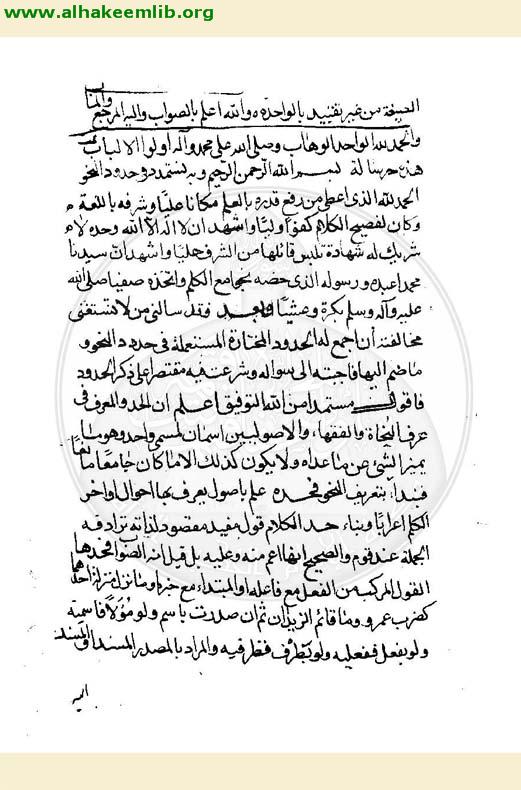 www.alhakeemlib.org
الصيغة من غير تقييد بالواحدة والله اعلم بالصواب واليه المرجع والمآب
والحمد لله الواحد الوهاب وصلى الله على محمد وآله اولوا الالباب
هذه رسالة بسم الله الرحمن الرحيم وبه نستمد حدود النحو
الحمد لله الذى اعطى من رفع قدره بالعلم مكانا عليا وشرفه باللغة
وكان لفصيح الكلام كفوا وليا واشهد ان لا اله الا الله وحده لا
شريك له شهادة تلبس قائلها من الشرف حليا واشهد ان سيدنا
محمد اعبده ورسوله الذى خصه بجوامع الكلم واتخذه صفيا صلى الله
عليه وآله وسلم بكرة وعشيا وبعد فقد سالنى من لا تستغنى
مخالفته أن اجمع له الحدود المختارة المستعملة فى حدود النحو و
ما ضم اليها فاجبته الى سواله وشرعت فيه مقتصرا على ذكر الحدود
فاقول مستمدا من الله التوفيق اعلم ان الحد والمعرف فى
عرف النحاة والفقهاء والاصوليين اسمان لمسمى واحد وهو ما
يميز الشئ عن ما عداه ولا يكون كذلك الا ما كان جامعا مانعا
فنبدا بتعريف النحو فحده علم باصول يعرف بها احوال اواخر
الكلم اعرابا وبناء حد الكلام قول مفيد مقصود لذاته ترادفه
الجملة عند قوم والصحيح انها اعم منه وعليه بل قيل انه الصواب فحدها
القول المركب من الفعل مع فاعله او المبتداء مع خبره او ما نزل منزلة احدهما
كضرب عمرو وما قائم الزيدان ثم ان صدرت باسم ولو مؤولا فاسمية
ولو بفعل ففعليه ولو بظرف فظرفيه والمراد بالمصدر المسند او المسند
اليه